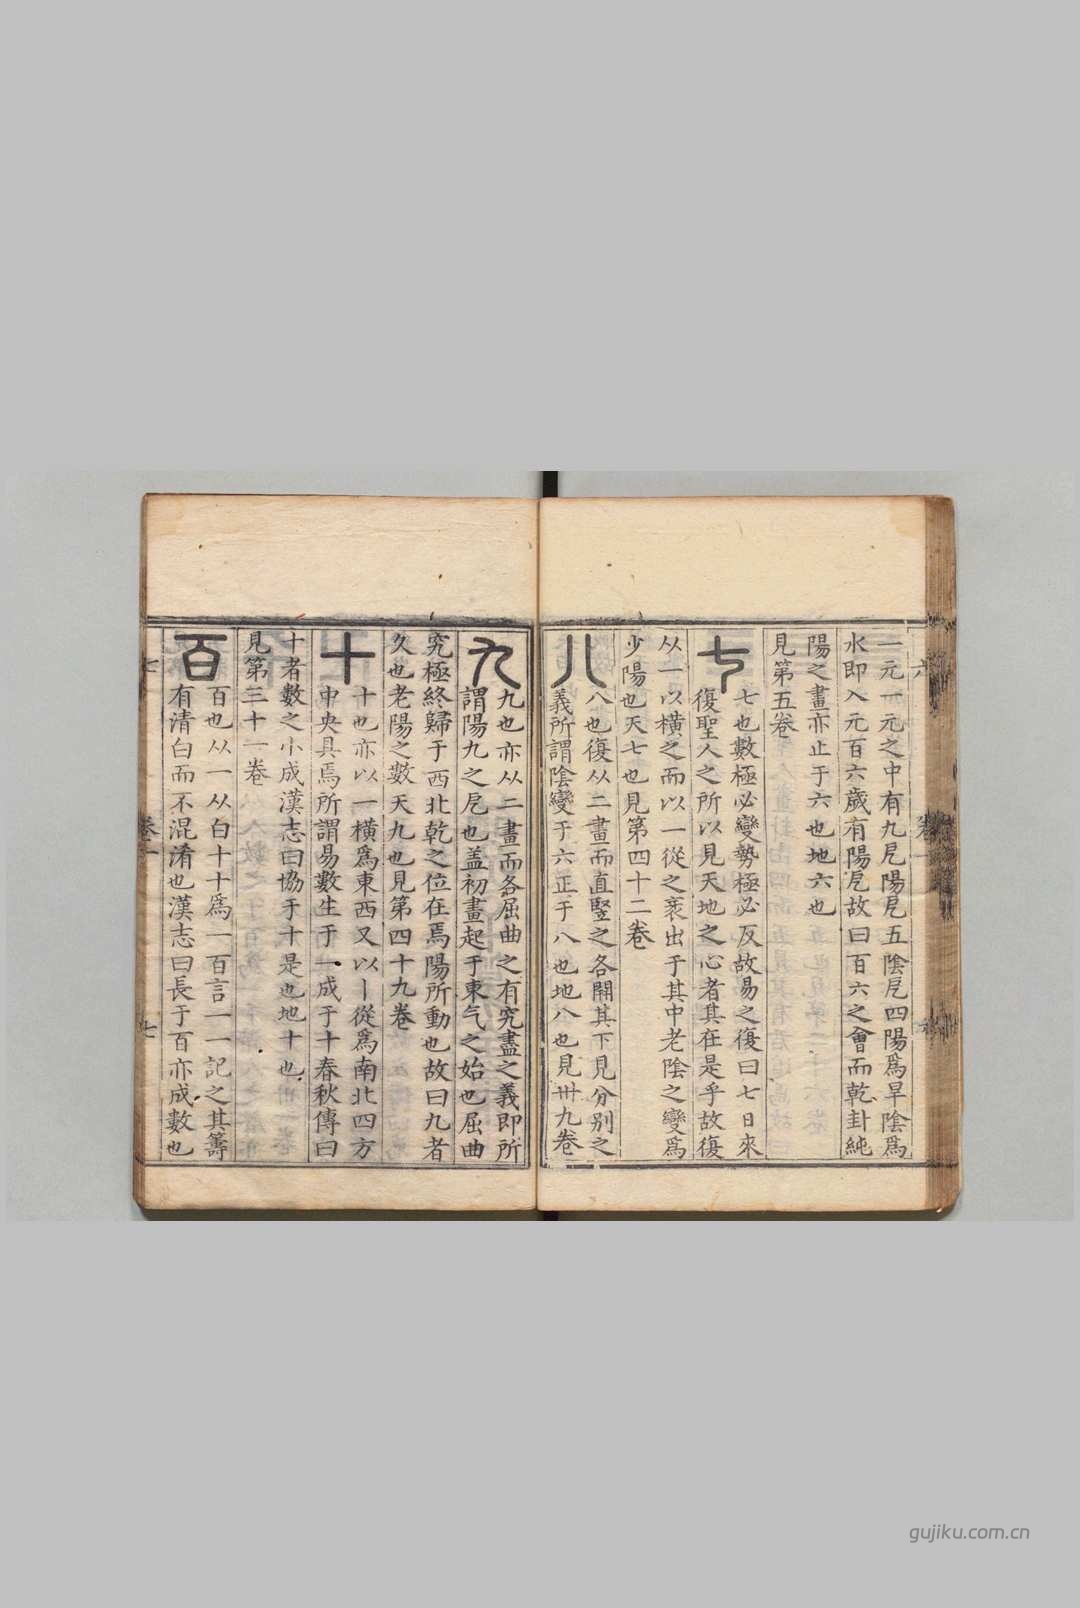 一元一元之中有九戹陽戹五陰戹四陽爲旱陰爲
水即入元百六歲有陽戹故曰百六之會而乾卦純
陽之畫亦止于六也地六也
見第五卷
七
七也數極必變勢極必反故易之復曰七日來
復聖人之所以見天地之心者其在是乎故復
从一以橫之而以一從之衺出于其中老陰之變爲
少陽也天七也見第四十二卷
八
八也復从二畫而直豎之各開其下見分别之
義所謂陰變于六正于八也地八也見卌九卷
九
九也亦从二畫而各屈曲之有究盡之義即所
謂陽九之戹也盖初畫起于東气之始也屈曲
究極終歸于西北乾之位在焉陽所動也故曰九者
久也老陽之數天九也見第四十九卷
十
十也亦以一橫爲東西又以丨從爲南北四方
中央具焉所謂易數生于一成于十春秋傳曰
十者數之小成漢志曰協于十是也地十也
見第三十一卷
百
百也从一从白十十爲一百言一一記之其籌
有清白而不混淆也漢志曰長于百亦成數也
六
卷一
七
卷一
七
gujiku.com.cn